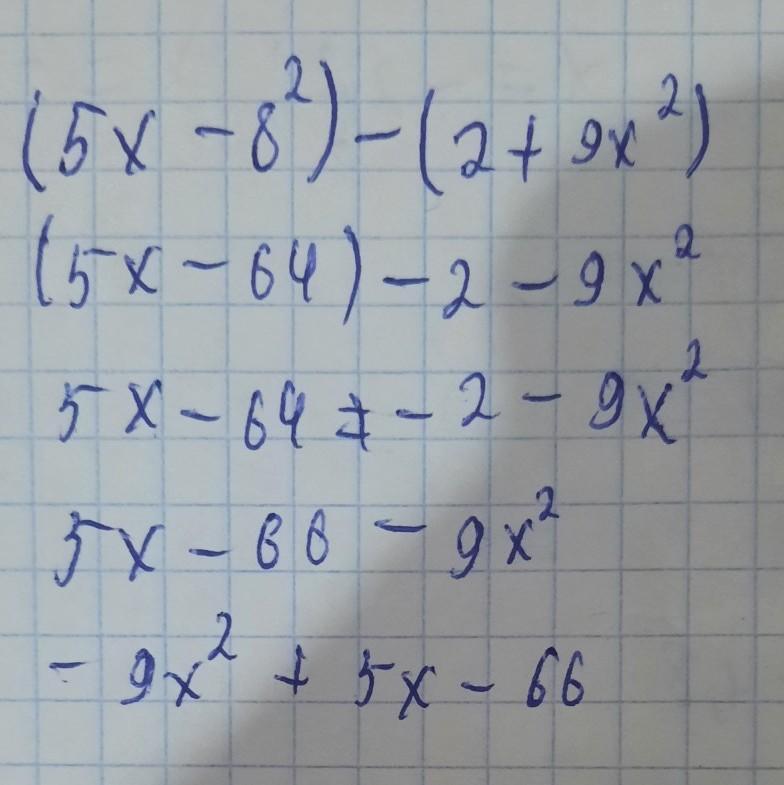 (5x - 8²) - (2 + 9x²)
(5x - 64) - 2 - 9x²
5x - 64 - 2 - 9x²
5x - 66 - 9x²
- 9x² + 5x - 66